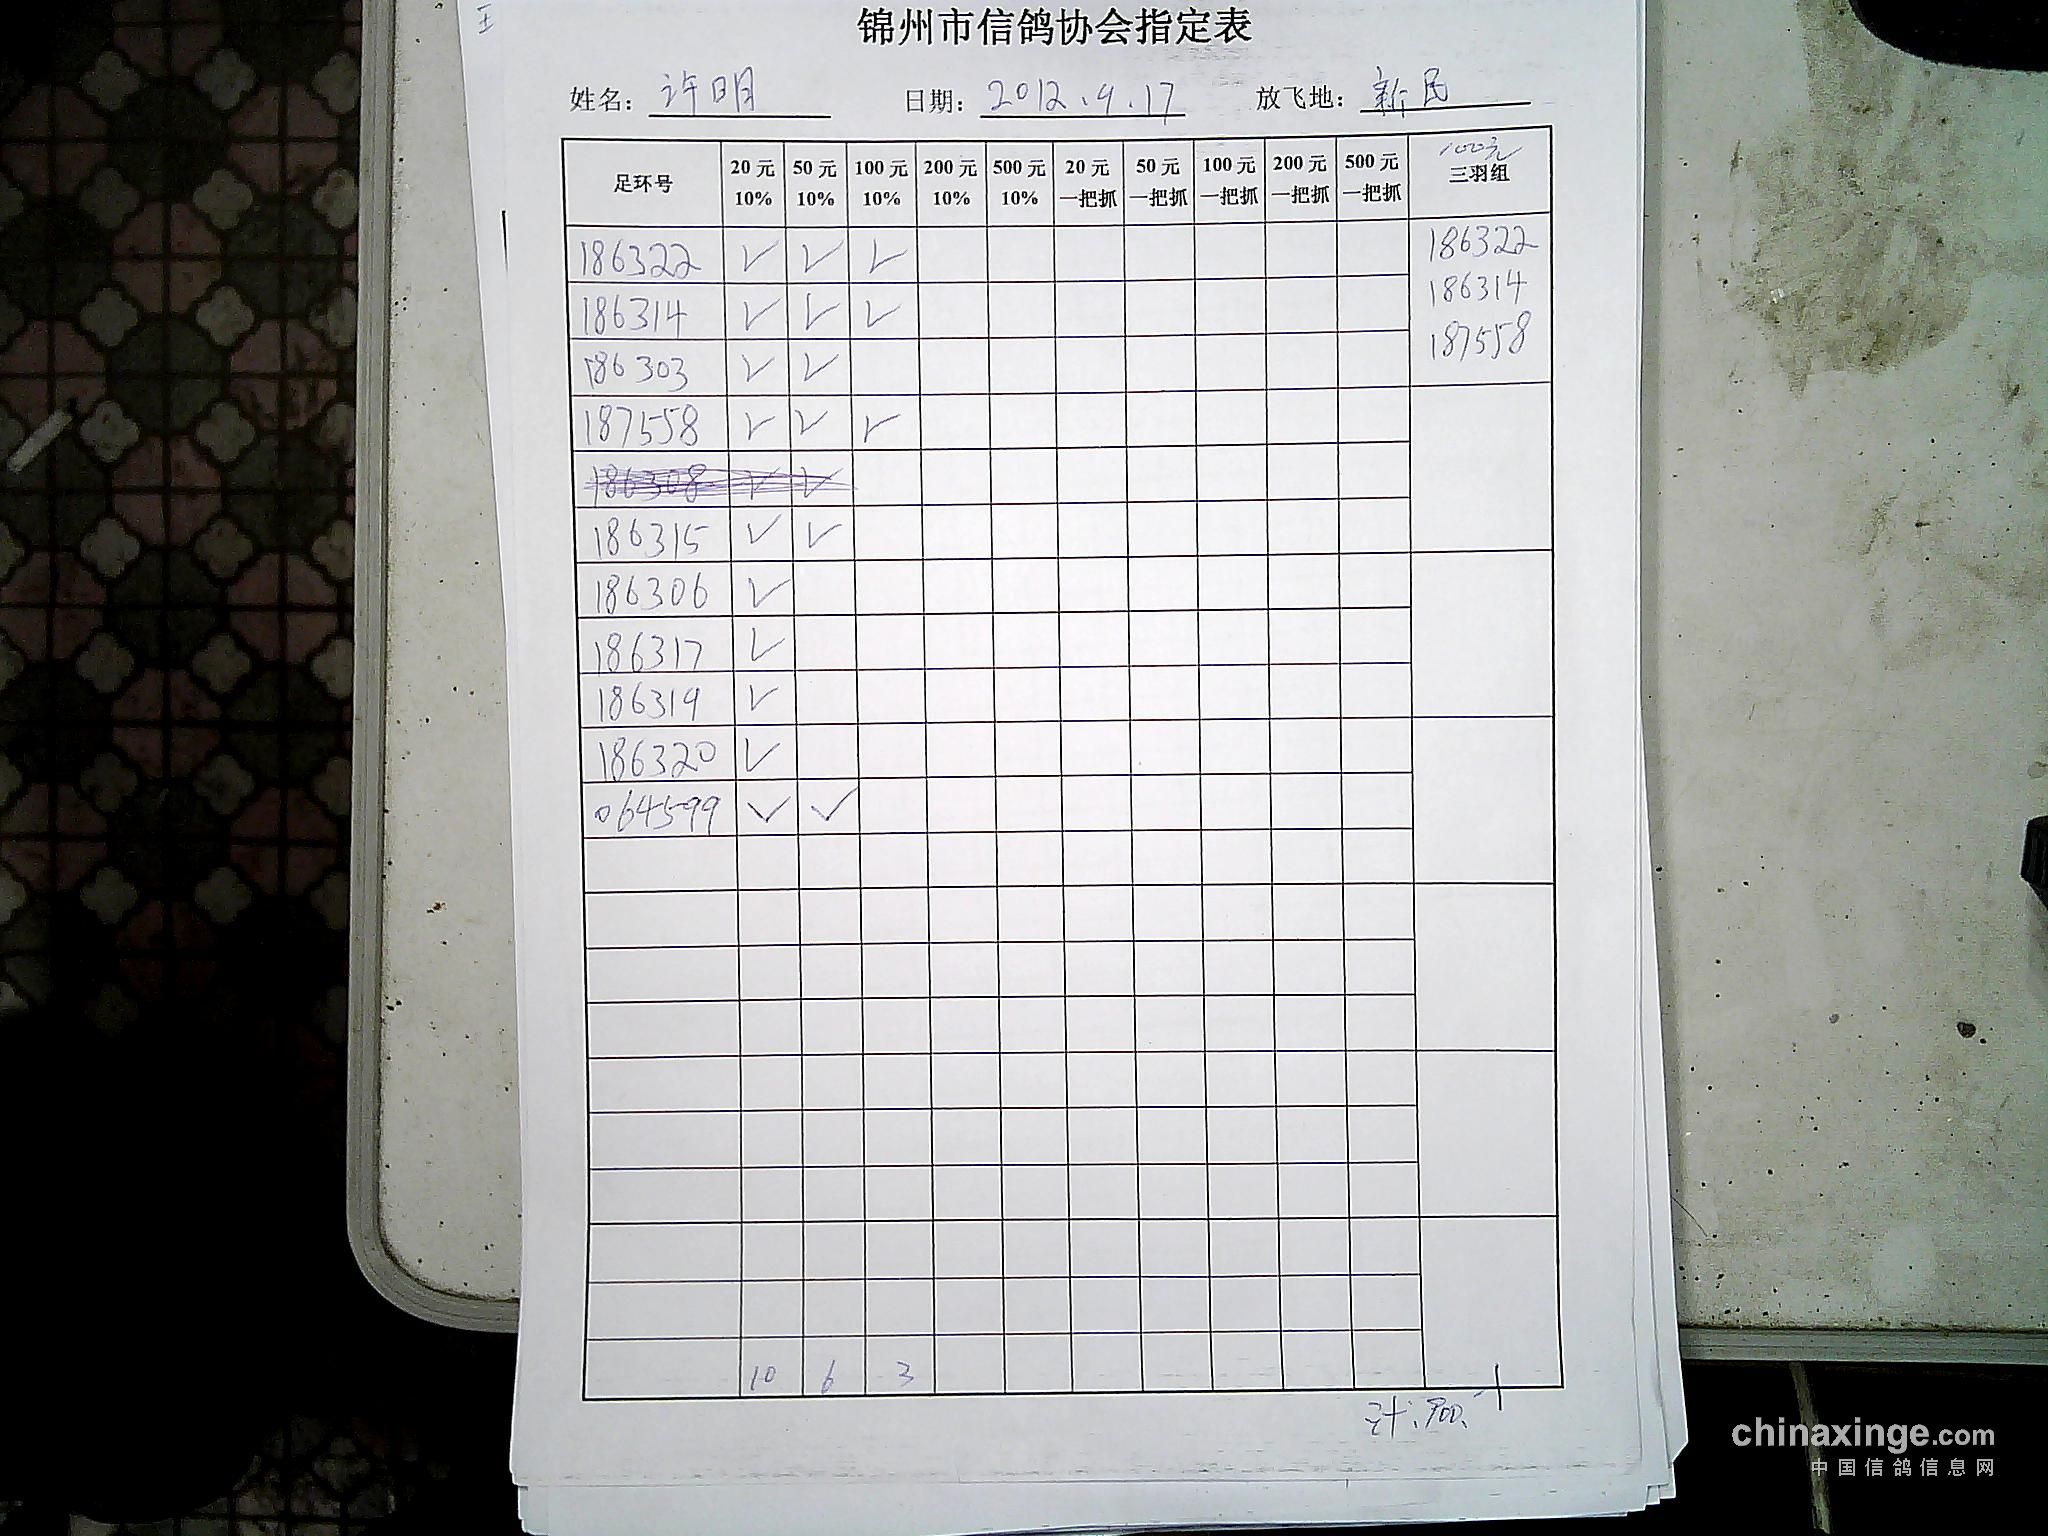 王
锦州市信鸽协会指定表
姓名: 许明 日期: 2012.9.17 放飞地: 新民
足环号 20元 10% 50元 10% 100元 10% 200元 10% 500元 10% 20元 一把抓 50元 一把抓 100元 一把抓 200元 一把抓 500元 一把抓 100元 三羽组
186322 ✓ ✓ ✓ 186322
186314 ✓ ✓ ✓ 186314
186303 ✓ ✓ 187558
187558 ✓ ✓ ✓
186308 ✓ ✓
186315 ✓ ✓
186306 ✓
186317 ✓
186319 ✓
186320 ✓
064599 ✓ ✓
10 6 3 1
计:900.
chinaxinge.com
中国信鸽信息网